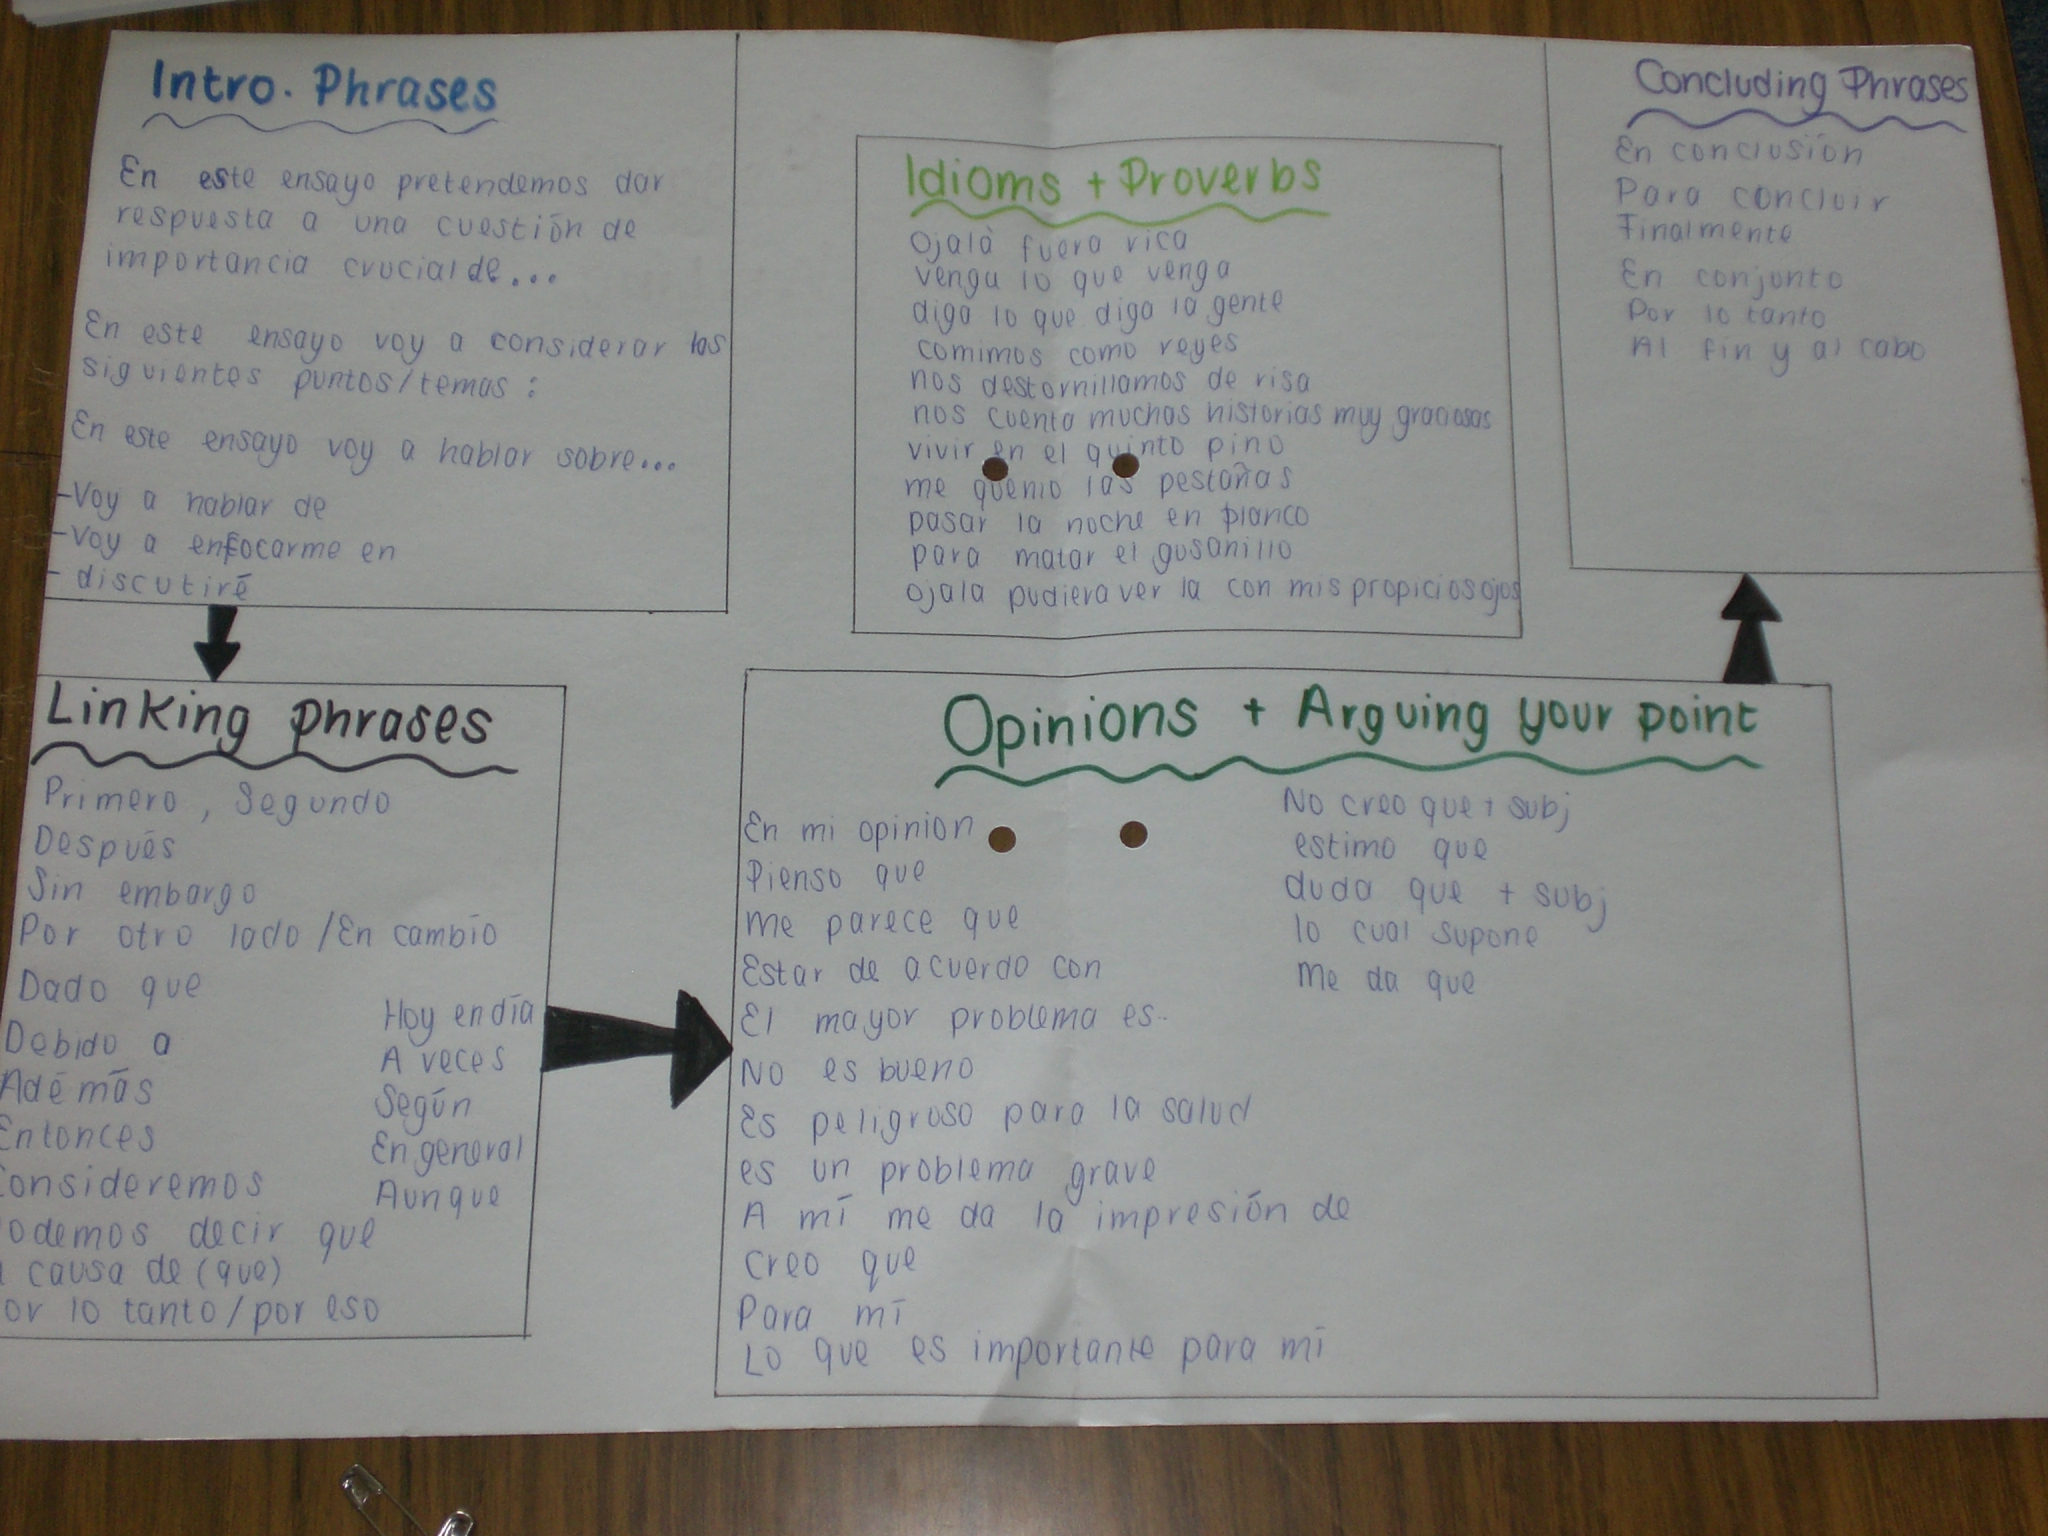 Intro. Phrases
En este ensayo pretendemos dar
respuesta a una cuestión de
importancia crucial de...
En este ensayo voy a considerar los
siguientes puntos/temas :
En este ensayo voy a hablar sobre...
-Voy a hablar de
-Voy a enfocarme en
- discutiré
Linking phrases
Primero , Segundo
Después
Sin embargo
Por otro lado /En cambio
Dado que
Debido a
Además
Entonces
Consideremos
odemos decir que
causa de (que)
or lo tanto/por eso
Hoy en día
A veces
Según
En general
Aunque
Idioms + Proverbs
Ojalà fuera rica
venga lo que venga
diga lo que diga la gente
comimos como reyes
nos destornillamos de risa
nos cuenta muchas historias muy graciosas
vivir en el quinto pino
me quemo las pestañas
pasar la noche en blanco
para matar el gusanillo
ojala pudiera ver la con mis propicios ojos
Opinions + Arguing your point
En mi opinion
Pienso que
Me parece que
Estar de acuerdo con
El mayor problema es..
No es bueno
Es peligroso para la salud
es un problema grave
A mí me da la impresión de
creo que
Para mí
Lo que es importante para mí
No creo que + subj
estimo que
duda que + subj
lo cual supone
Me da que
Concluding Phrases
En conclusión
Para concluir
Finalmente
En conjunto
Por lo tanto
Al fin y al cabo